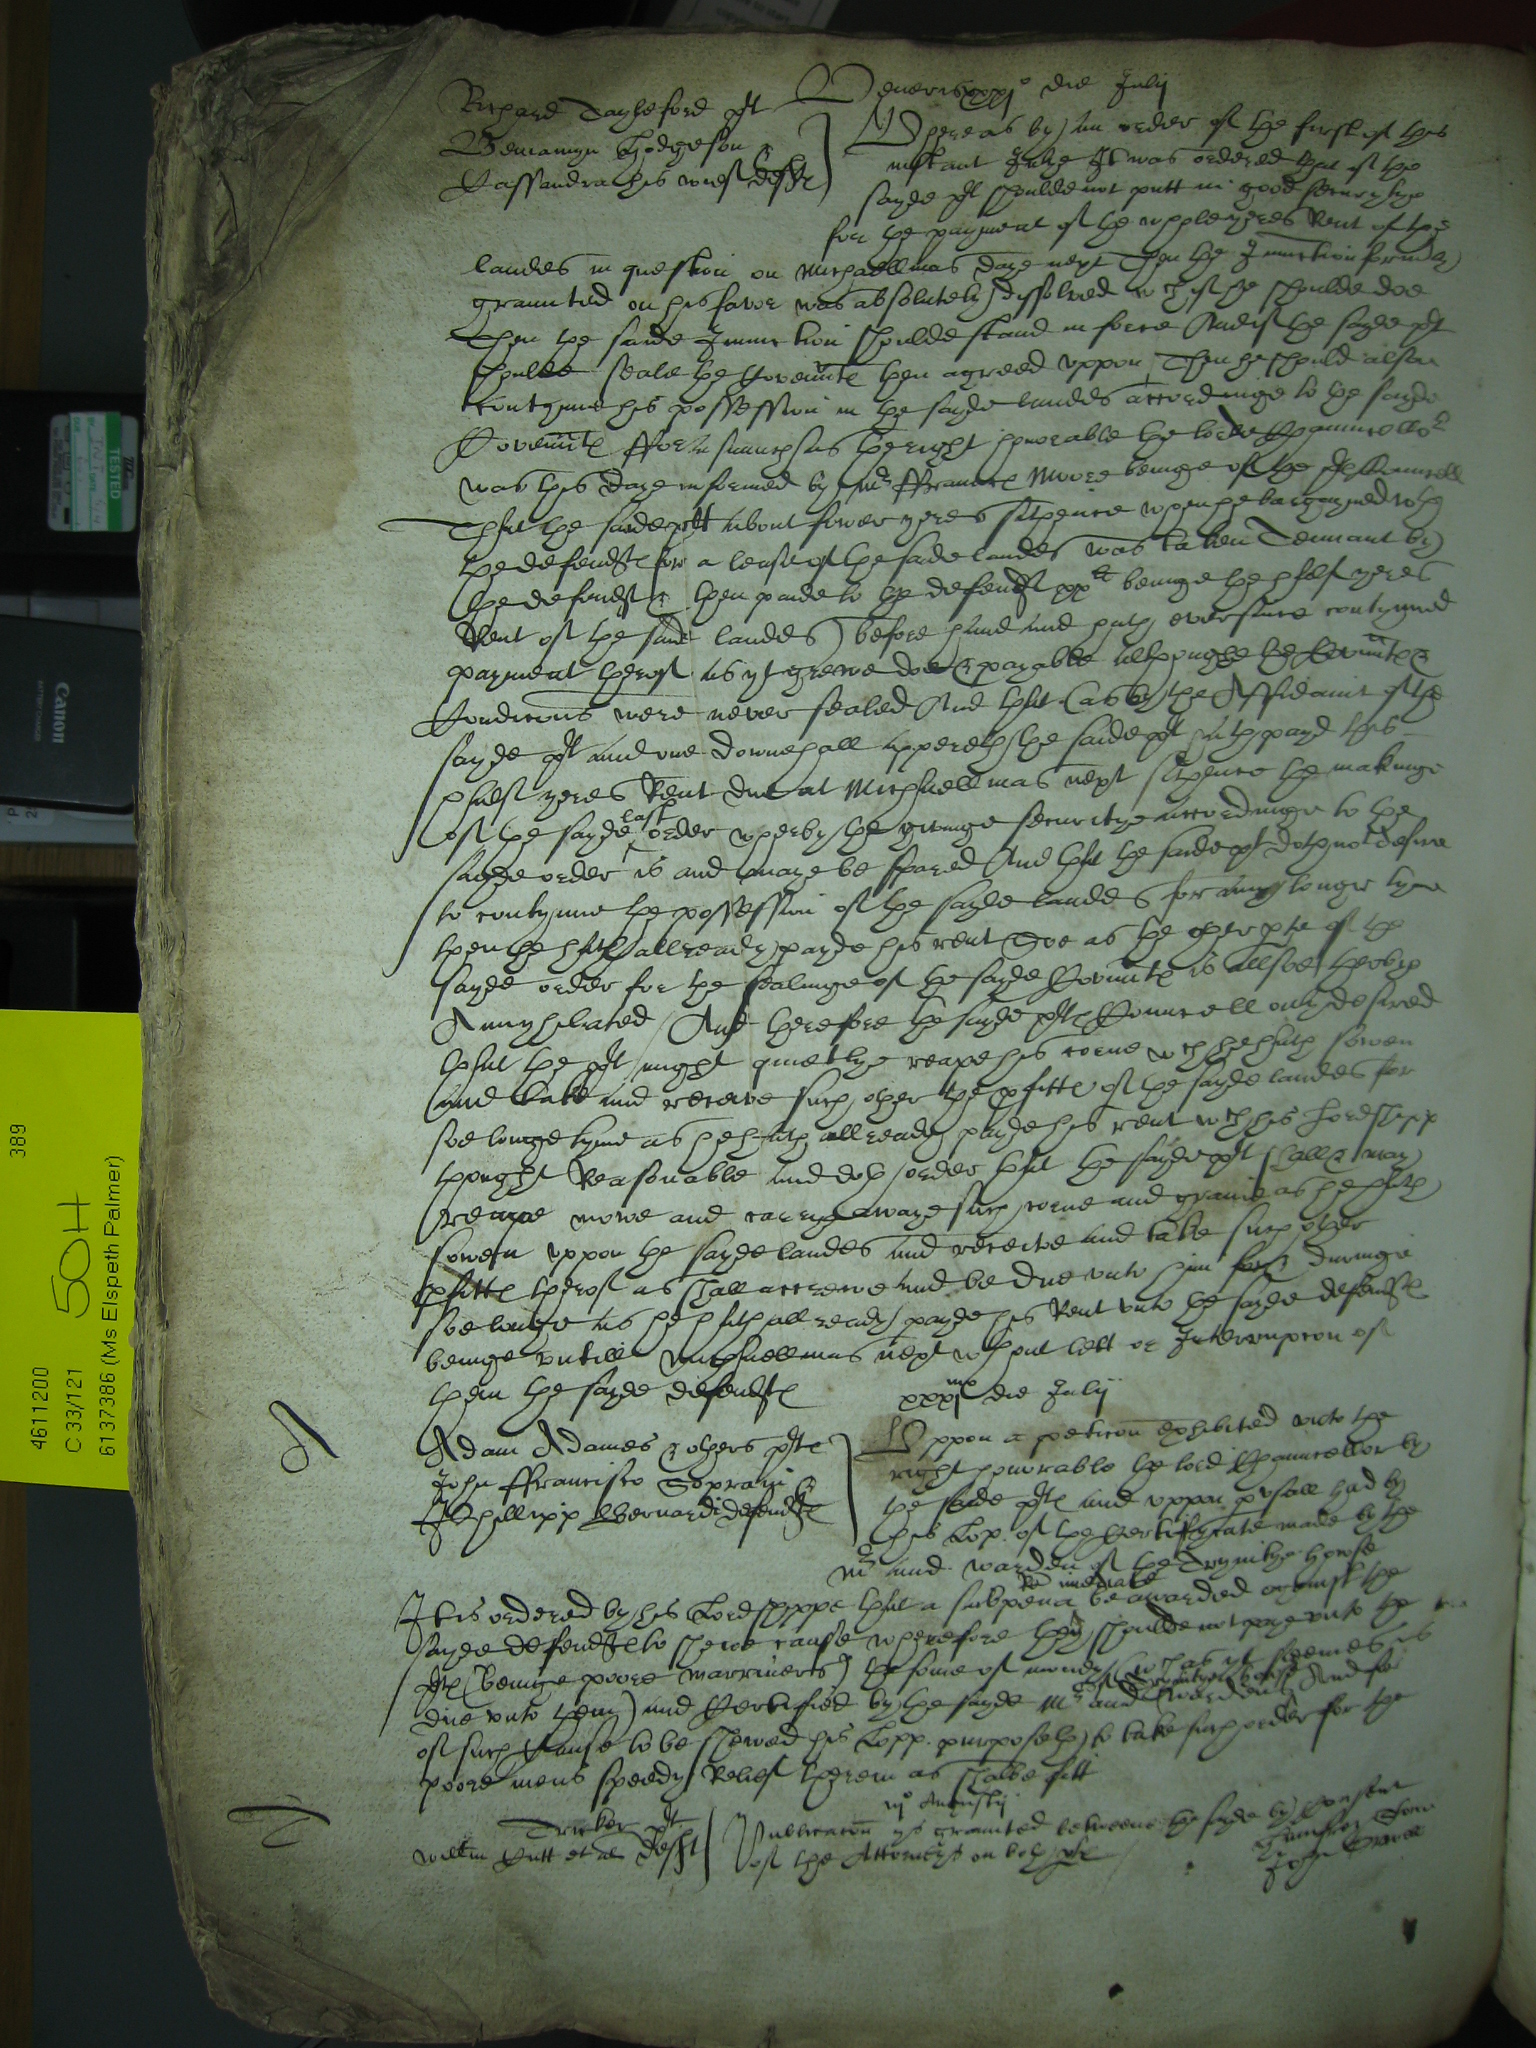 Veneris xxxj° die Julij
Richard Tayleford plt
Beniamyn Hodgeson &
Cassandra his wief defts
Whereas by an order of the first of this
instant Julye It was ordered that if the
sayde plt shoulde not putt in good securitye
for the payment of the whole yeres Rent of the
landes in question on Michaellmas daye next Then the Iniunction formerly
graunted on his favor was absolutely dissolved wch if he shoulde doe
Then the saide Iniunction shoulde stand in force And if the sayde plt
shoulde seale the Covenntes then agreed uppon Then he should alsoe
contynue his possession in the sayde landes accordinge to the sayde
Covenntes Fforasmuch as the right honorable the lorde Chauncellor
was this daye informed by mr Ffrauncis Moore beinge of the plts Councell
That the saide plt about fower yeres sithence when he bargayned wth
the defendts for a lease of the saide landes was taken Tennant by
the defendts & then paide to the defendts xxli beinge the halfe yeres
Rent of the saide landes before hand and hath ever since contynued
payment therof as yt grewe due & payable althoughe the Covenntes &
Condicions were never sealed And that (as by the Affidavit of the
sayde plt and one Downehall appereth) the saide plt hath payd this
halfe yeres Rent due at Michaellmas next sithence the makinge
of the sayde last order wherby the givinge securitye accordinge to the
sayde order is and maye be spared And that the saide plt doth not desire
to contynue the possession of the sayde landes for any longer tyme
then he hath allready payde his rent Soe as the other pte of the
sayde order for the sealinge of the sayde Covenntes is allsoe therby
Annyhilated And therefore the sayde plts Councell only desired
that the plt might quietlye reape his corne wch he hath sowen
and take and receive such other the pfitts of the sayde landes for
soe longe tyme as he hath allready payde his rent wch his Lordshipp
thought Reasonable and doth order that the sayde plt shall & may
reape mowe and carrye awaye such corne and graine as he hath
sowen uppon the sayde landes and receive and take such other
pfitts therof as shall accrewe and be due unto him duringe
soe longe as he hath allready payde his Rent unto the sayde defendts
beinge untill Michaellmas next wthout lett or Interrupcion of
them the sayde defendts
xxxjmo die Julij
A
Adam Adames & others plts
John Ffrancisco Soprani &
Phillipp Bernardi defendts
Uppon a peticon exhibited unto the
right honorable the lord Chauncellor by
the saide plts and uppon pusall had by
his Lop. of the Certifycate made by the
mr and warden of the Trynitye howse
It is ordered by his Lordshippe that a subpena imediate be awarded against the
sayde defendts to shewe cause wherefore they shoulde not paye unto the
plts (beinge poore marriners) the some of money (wch as yt seemes is
due unto them) and Certified by the sayde Mr and Wardens of Trynitye howse And for want
of such Cause to be shewed his Lopp. purposeth to take such order for the
poore mens speedy Relief therein as shalbe fitt
T
vj° Augustij
Tricker plt
Willm Cutt et al defts
Publicacon ys graunted betweene the sayde by Consent
of the Attorneys on both pts
John
TESTED
Canon
4611200
389
C 33/121
50H
6137386 (Ms Elspeth Palmer)